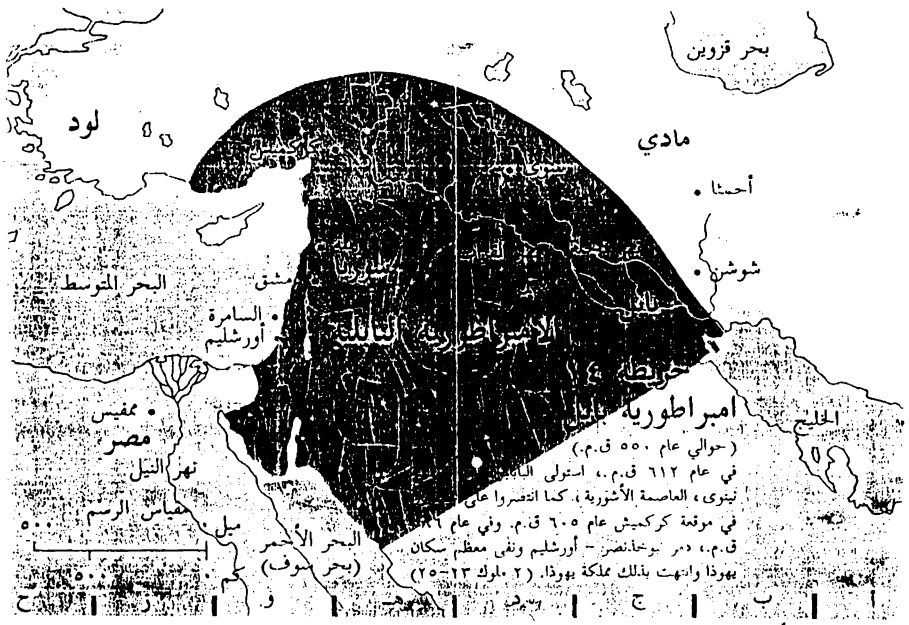 بحر قزوين
لود
مادي
كركميش
نينوى
أحمثا
شوشن
البحر المتوسط
دمشق
سوريا
نهر الفرات
بابل
السامرة
أورشليم
الامبراطورية البابلية
خريطة ٤
امبراطورية بابل
(حوالي عام ٥٥٠ ق.م.)
في عام ٦١٢ ق.م.، استولى
نينوى، العاصمة الأشورية، كما انتصروا على
في موقعة كركميش عام ٦٠٥ ق.م. وفي عام
ق.م.، دمر نبوخذنصر - أورشليم ونفى معظم سكان
يهوذا وانتهت بذلك مملكة يهوذا. (٢ ملوك ٢٣-٢٥)
الخليج
ممفيس
مصر
نهر النيل
مقياس الرسم
ميل
٥٠٠
كم
٥٠٠
البحر الأحمر
(بحر سوف)
أ ب ج د هـ و ر ح